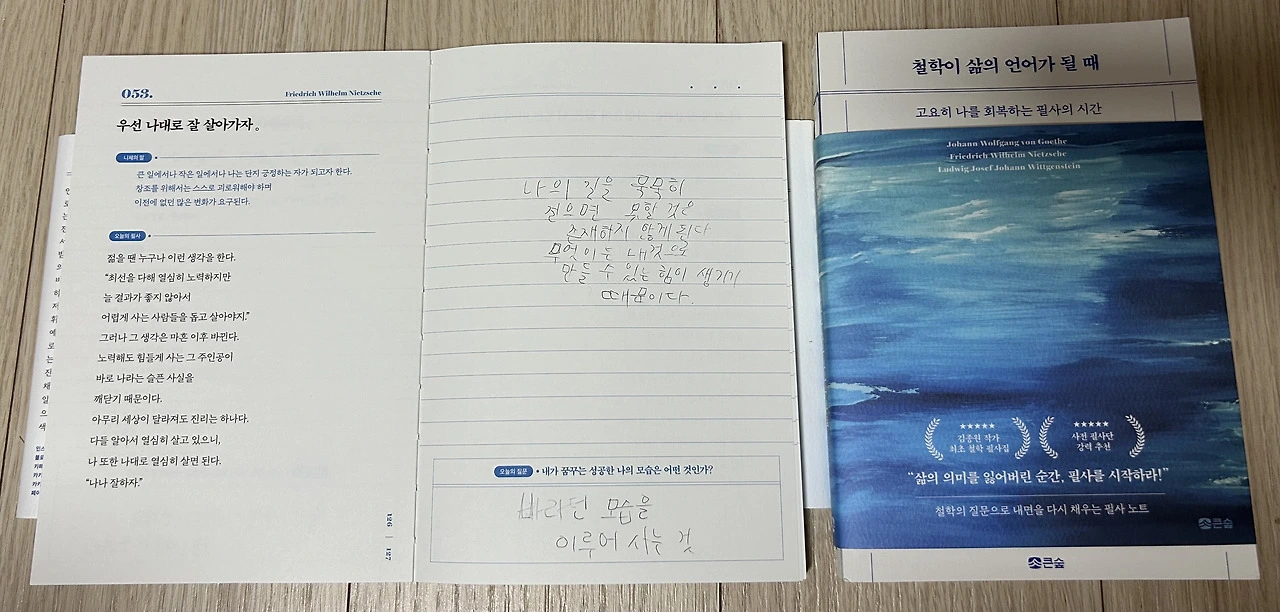 053.
Friedrich Wilhelm Nietzsche
우선 나대로 잘 살아가자.
니체의 말
큰 일에서나 작은 일에서나 나는 단지 긍정하는 자가 되고자 한다.
창조를 위해서는 스스로 괴로워해야 하며
이전에 없던 많은 변화가 요구된다.
오늘의 필사
젊을 땐 누구나 이런 생각을 한다.
“최선을 다해 열심히 노력하지만
늘 결과가 좋지 않아서
어렵게 사는 사람들을 돕고 살아야지.”
그러나 그 생각은 마흔 이후 바뀐다.
노력해도 힘들게 사는 그 주인공이
바로 나라는 슬픈 사실을
깨닫기 때문이다.
아무리 세상이 달라져도 진리는 하나다.
다들 알아서 열심히 살고 있으니,
나 또한 나대로 열심히 살면 된다.
“나나 잘하자.”
126 | 127
나의 길을 묵묵히
걸으면 못할 것은
존재하지 않게 된다
무엇이든 내것으로
만들 수 있는 힘이 생기기
때문이다.
오늘의 질문
내가 꿈꾸는 성공한 나의 모습은 어떤 것인가?
바라던 모습을
이루어 사는 것
철학이 삶의 언어가 될 때
고요히 나를 회복하는 필사의 시간
Johann Wolfgang von Goethe
Friedrich Wilhelm Nietzsche
Ludwig Josef Johann Wittgenstein
★★★★★
김종원 작가
최초 철학 필사집
★★★★★
사전 필사단
강력 추천
“삶의 의미를 잃어버린 순간, 필사를 시작하라!”
철학의 질문으로 내면을 다시 채우는 필사 노트
큰숲
큰숲